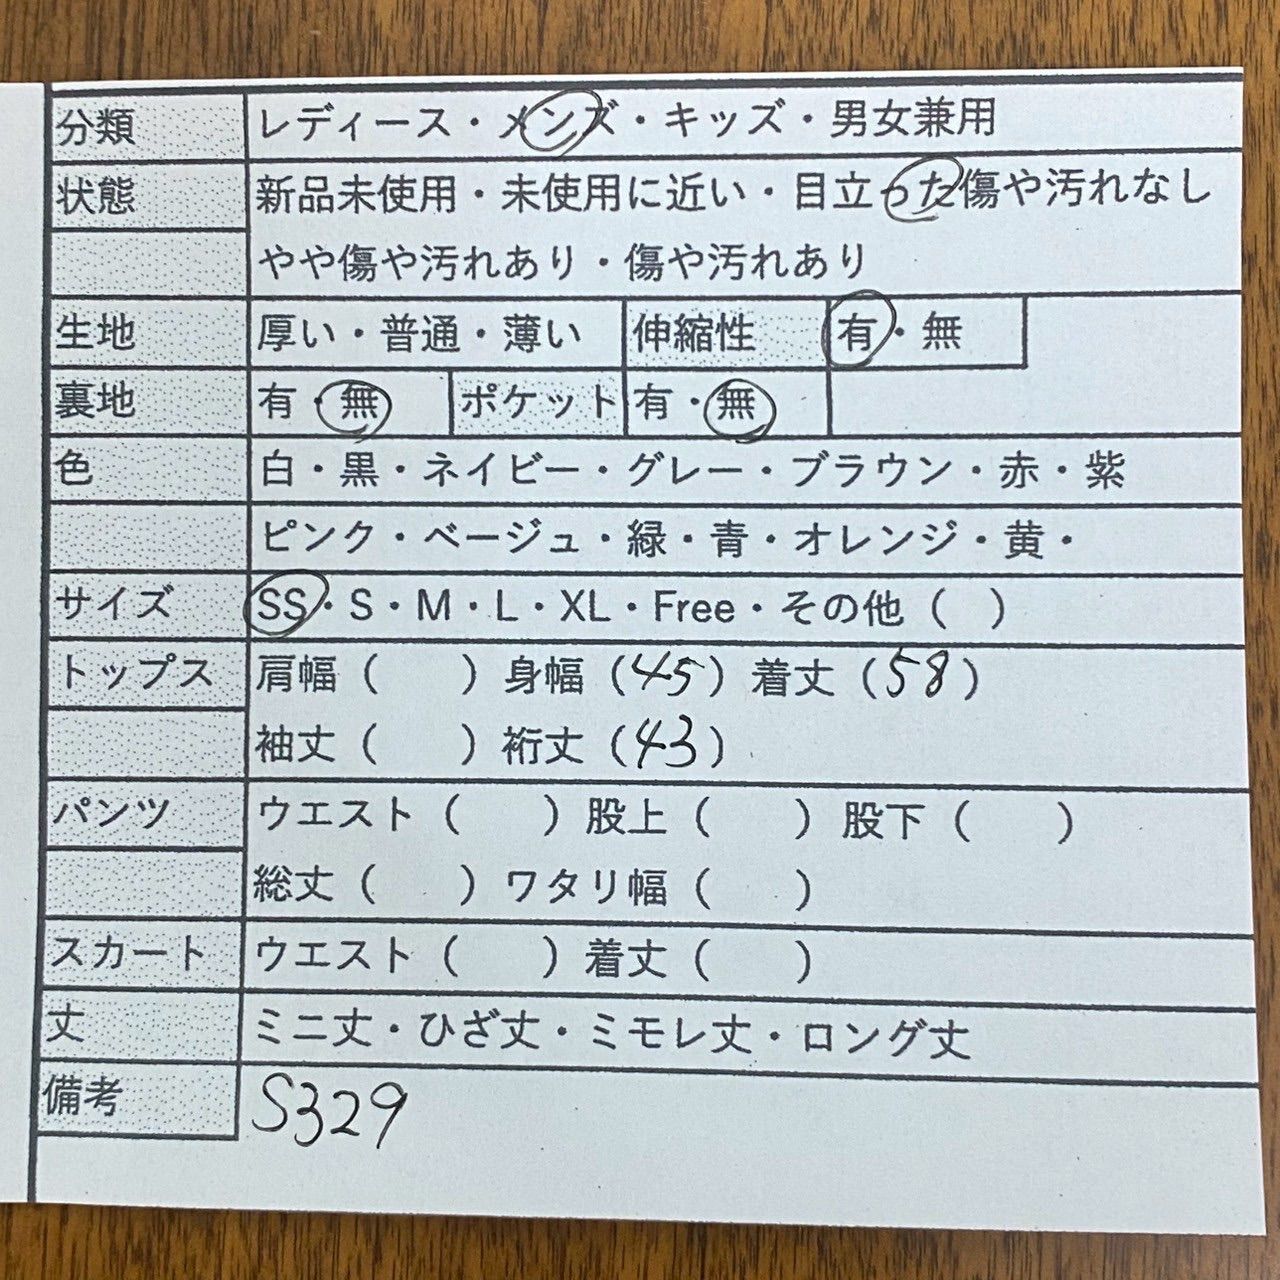 分類 レディース・メンズ・キッズ・男女兼用
状態 新品未使用・未使用に近い・目立った傷や汚れなし
やや傷や汚れあり・傷や汚れあり
生地 厚い・普通・薄い 伸縮性 有・無
裏地 有・無 ポケット 有・無
色 白・黒・ネイビー・グレー・ブラウン・赤・紫
ピンク・ベージュ・緑・青・オレンジ・黄・
サイズ SS・S・M・L・XL・Free・その他（ ）
トップス 肩幅（ ）身幅（45）着丈（58）
袖丈（ ）裄丈（43）
パンツ ウエスト（ ）股上（ ）股下（ ）
総丈（ ）ワタリ幅（ ）
スカート ウエスト（ ）着丈（ ）
丈 ミニ丈・ひざ丈・ミモレ丈・ロング丈
備考 S329